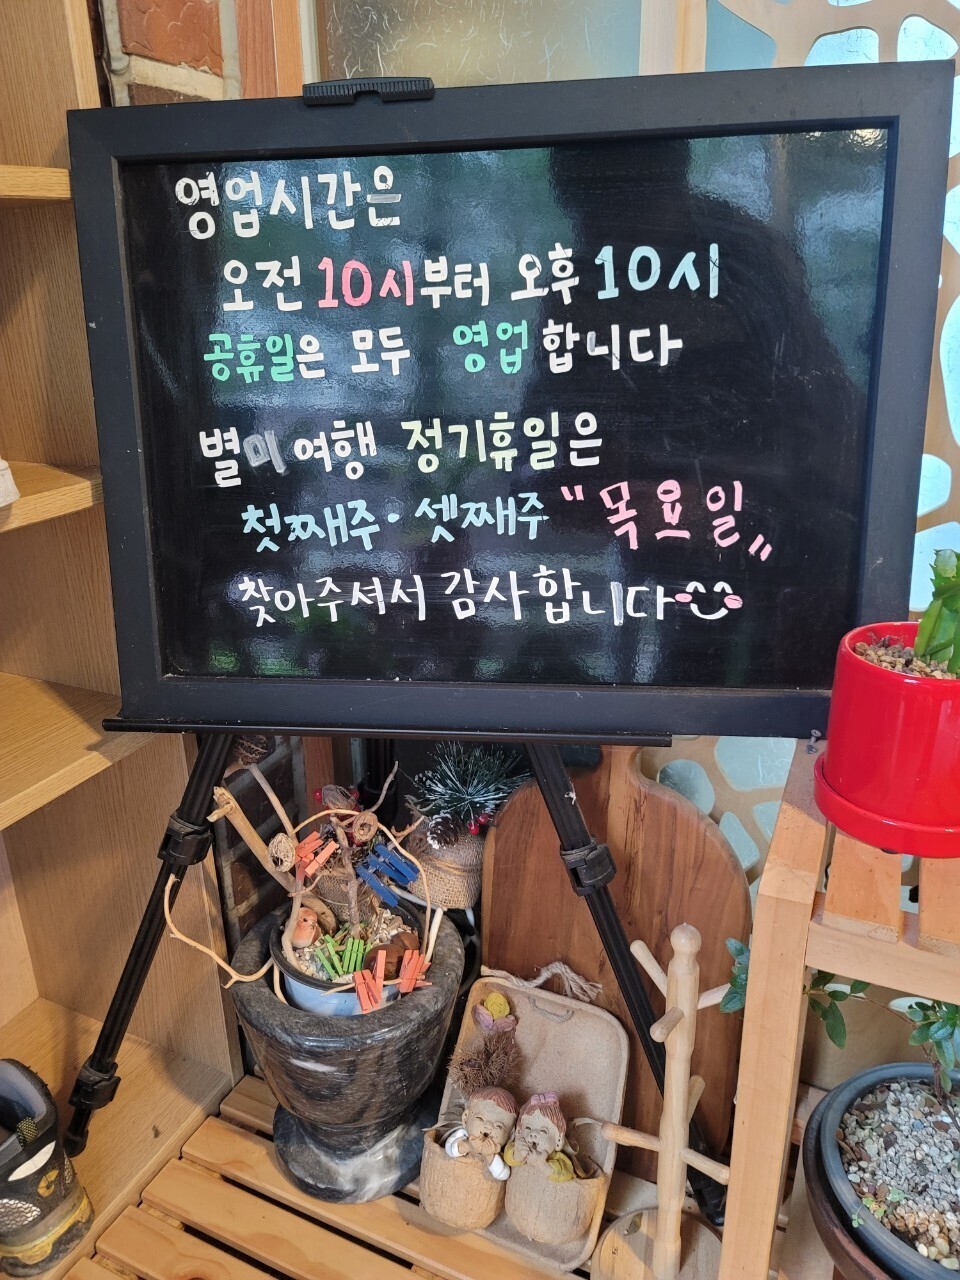 영업시간은
오전 10시부터 오후 10시
공휴일은 모두 영업합니다
별미여행 정기휴일은
첫째주·셋째주 "목요일"
찾아주셔서 감사합니다